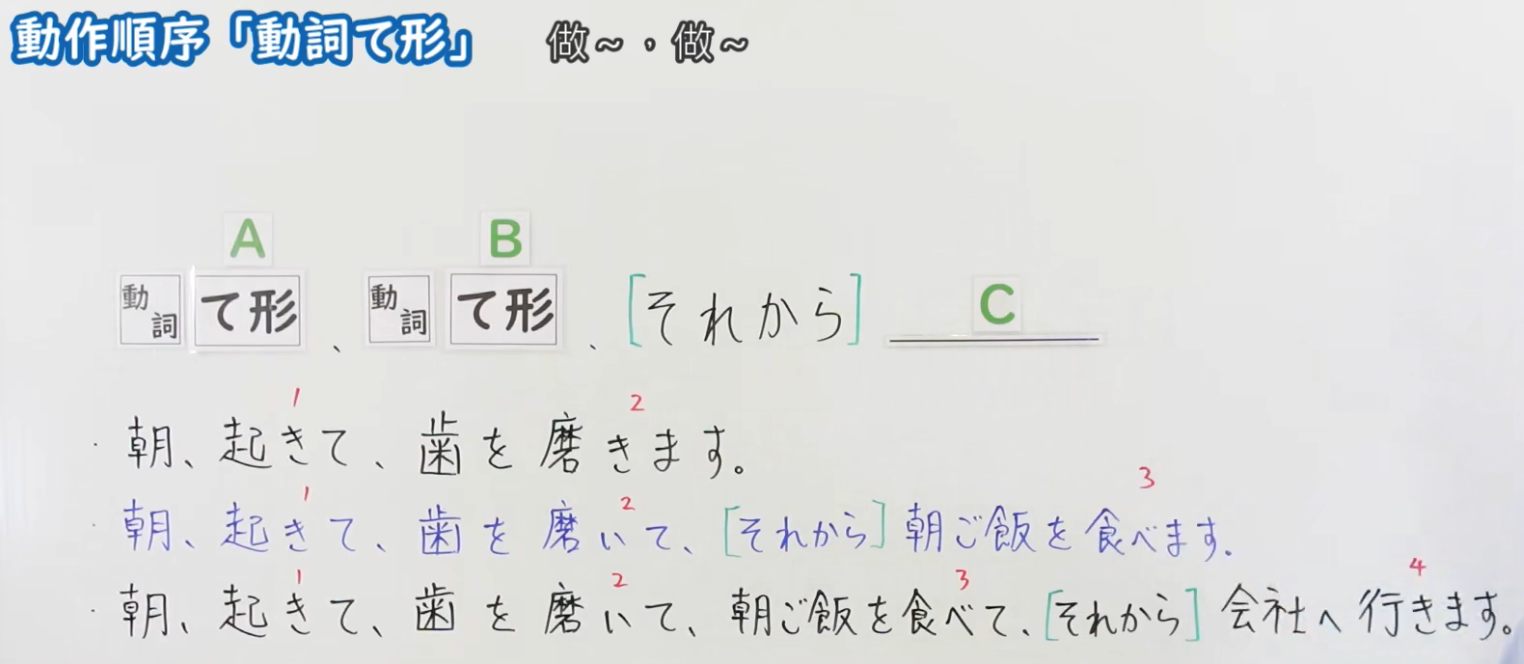 動作順序「動詞て形」 做~,做~
A B
動詞 て形、動詞 て形、[それから] C
1 2
・朝、起きて、歯を磨きます。
1 2 3
・朝、起きて、歯を磨いて、[それから]朝ご飯を食べます.
1 2 3 4
・朝、起きて、歯を磨いて、朝ご飯を食べて、[それから]会社へ行きます。